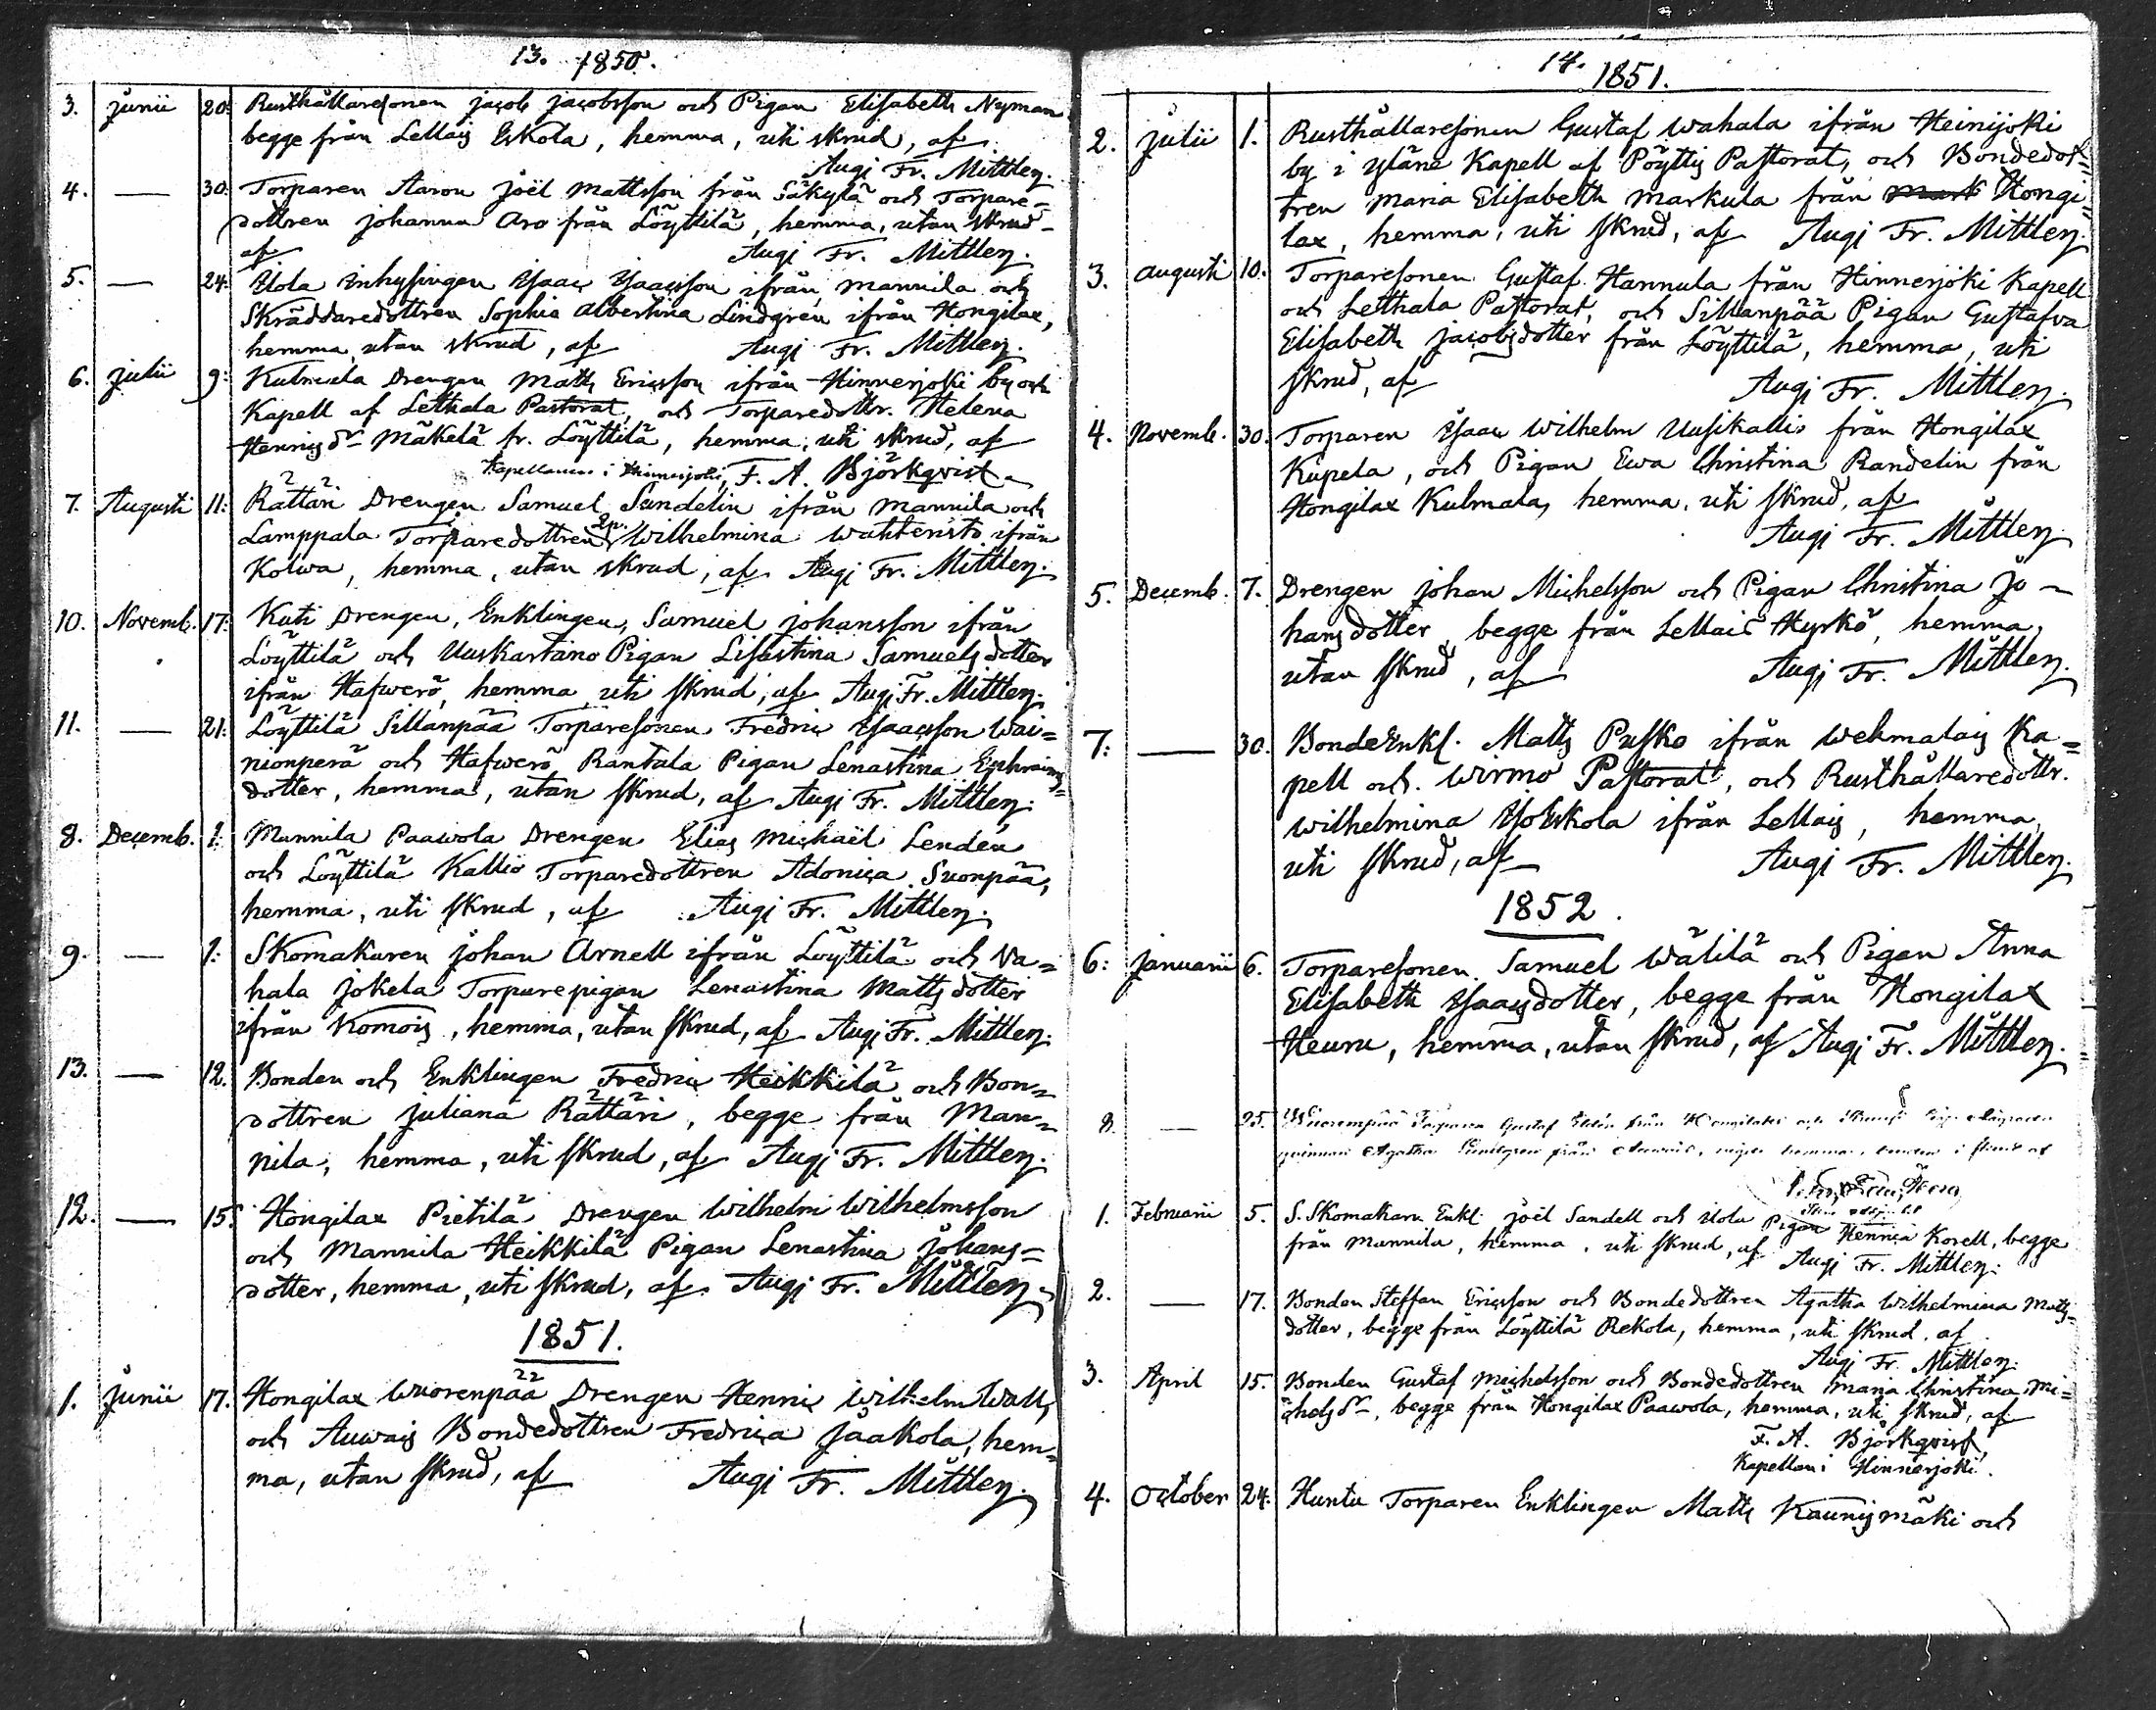 13. 1850.
3. Junii 20: Rusthållaresonen Jacob Jacobsson och Pigan Elisabeth Nyman
begge från Lellais Eskola, hemma, uti skrud, af
Augi Fr. Mittler.
4. — 30: Torparen Aaron Joël Mattsson från Säkylä och Torpare-
dottren Johanna Aro från Löyttilä, hemma, utan skrud
af Augi Fr. Mittler.
5. — 24: Uola Inhysingen Isaac Isaacsson ifrån Mannila och
Skräddaredottren Sophia Albertina Lindgren ifrån Hongilax,
hemma, utan skrud, af Augi Fr. Mittler.
6. Julii 9: Kulmala Drengen Matts Ericsson ifrån Hinnerjoki by och
Kapell af Letthala Pastorat, och Torparedottr. Helena
Henrigsdr Mäkelä fr. Löyttilä, hemma, uti skrud, af
Kapellanen i Hinnerjoki, F. A. Björkqvist
7. Augusti 11: Rättäri Drengen Samuel Sundelin ifrån Mannila och
Lamppala Torparedottren Wilhelmina Wahteristo ifrån
Kolwa, hemma, utan skrud, af Augi Fr. Mittler.
10. Novemb. 17: Kuti Drengen, Enklingen, Samuel Johansson ifrån
Löyttilä och Uuskartano Pigan Lisastina Samuelsdotter
ifrån Hafwerö, hemma, uti skrud, af Augi Fr. Mittler.
11. — 21: Löyttilä Sillanpää Torparesonen Fredric Isaacsson Wai=
nionperä och Hafwerö Rantala Pigan Lenastina Ephraims=
dotter, hemma, utan skrud, af Augi Fr. Mittler.
8. Decemb. 1: Mannila Paawola Drengen Elias Michaël Lendén
och Löyttilä Kallio Torparedottren Adonica Suonpää,
hemma, uti skrud, af Augi Fr. Mittler.
9. — 1: Skomakaren Johan Arnell ifrån Löyttilä och Va=
hala Jokela Torparepigan Lenastina Mattsdotter
ifrån Komois, hemma, utan skrud, af Augi Fr. Mittler.
13. — 12. Bonden och Enklingen Fredric Heikkilä och Bon=
dottren Juliana Rättäri, begge från Man=
nila, hemma, uti skrud, af Augi Fr. Mittler.
12. — 15. Hongilax Pietilä Drengen Wilhelm Wilhelmsson
och Mannila Heikkilä Pigan Lenastina Johans=
dotter, hemma, uti skrud, af Augi Fr. Mittler.
1851.
1. Junii 17. Hongilax Wuorenpää Drengen Henric Wilhelm Wall,
och Auwais Bondedottren Fredrica Jaakola, hem=
ma, utan skrud, af Augi Fr. Mittler.
14.
1851.
2. Julii 1. Rusthållaresonen Gustaf Wahala ifrån Heinijoki
by i Yläne Kapell af Pöyttis Pastorat, och Bondedot=
tren Maria Elisabeth Markula från Mark Hongi=
lax, hemma, uti skrud, af Augi Fr. Mittler.
3. Augusti 10. Torparesonen Gustaf Hannula från Hinnerjoki Kapell
och Letthala Pastorat, och Sillanpää Pigan Gustafva
Elisabeth Jacobsdotter från Löyttilä, hemma, uti
skrud, af Augi Fr. Mittler.
4. Novemb. 30. Torparen Isaac Wilhelm Uusikallio från Hongilax
Kupela, och Pigan Ewa Christina Randelin från
Hongilax Kulmala, hemma, uti skrud, af
Augi Fr. Mittler
5. Decemb. 7. Drengen Johan Michelsson och Pigan Christina Jo-
hansdotter, begge från Lellais Hyrkö, hemma,
utan skrud, af Augi Fr. Mittler.
7: — 30. Bonde Enkl. Matts Pusko ifrån Wehmalais Ka=
pell och Wirmo Pastorat, och Rusthållaredottr.
Wilhelmina IsoEskola ifrån Lellais, hemma,
uti skrud, af Augi Fr. Mittler.
1852.
6: Januarii 6. Torparesonen Samuel Wälilä och Pigan Anna
Elisabeth Isaacsdotter, begge från Hongilax
Heuru, hemma, utan skrud, af Augi Fr. Mittler.
8. — 25. Wuorenpää Torparen Gustaf från Hongilaks och
qvinnan Agatha från hemma, i skrud af
1. Februarii 5. S. Skomakarn Enkl. Joël Sandell och Uola Pigan Henrica Korell, begge
från Mannila, hemma, uti skrud, af Augi Fr. Mittler.
2. — 17. Bonden Steffan Ericsson och Bondedottren Agatha Wilhelmina Matts=
dotter, begge från Löyttilä Rekola, hemma, uti skrud, af
Augi Fr. Mittler.
3. April 15. Bonden Gustaf Michelsson och Bondedottren Maria Christina Mi=
chelsdr, begge från Hongilax Paawola, hemma, uti skrud, af
F. A. Björkqvist,
Kapellan i Hinnerjoki.
4. October 24: Huntu Torparen Enklingen Matts Kaunismäki och